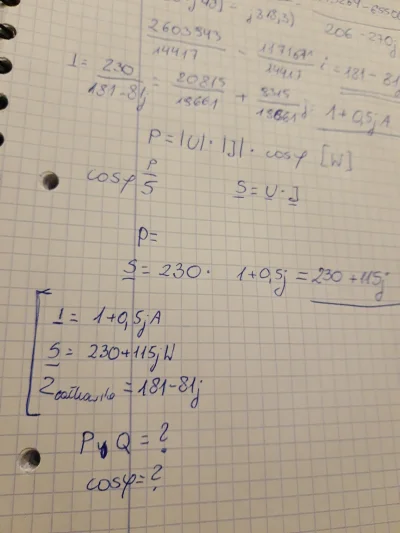 206 - 270j
2603543/14417 - 1171671/14417 i = 181 - 81j
I = 230/181-81j = 20815/18661 + 9315/18661 j 1+0,5j A
P = |U| · |I| · cosφ [W]
cosφ P/S S = U · I
P =
S = 230 · 1+0,5j = 230 + 115j
I = 1+0,5j A
S = 230+115j W
Z całkowite = 181-81j
P i Q = ?
cosφ = ?